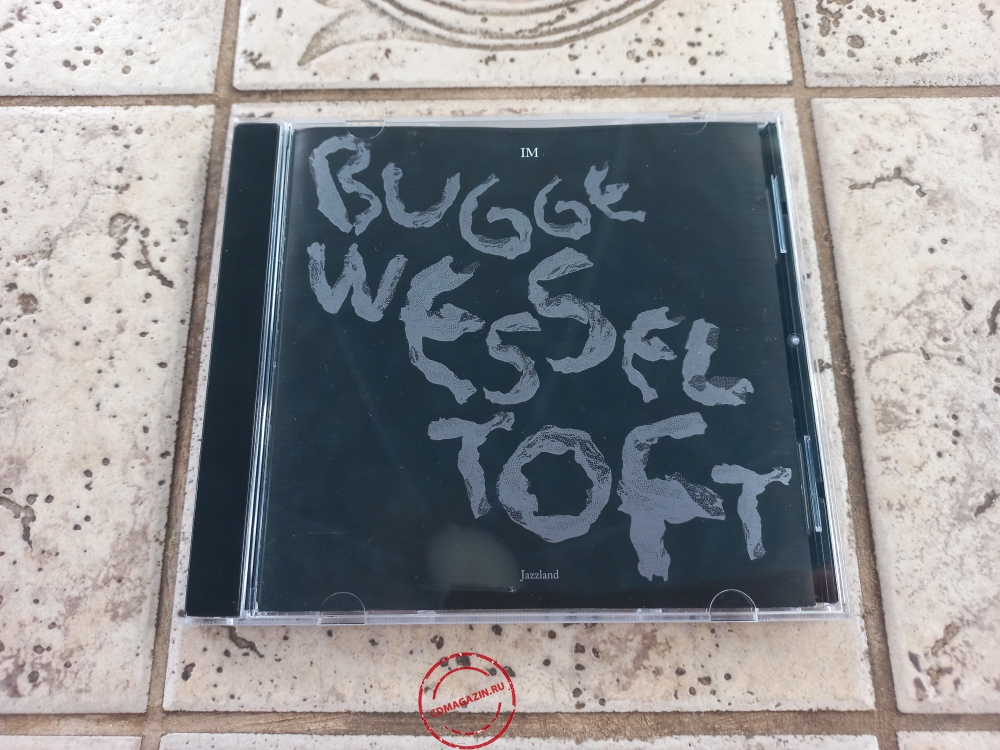 IM
BUGGE
WESSEL
TOFT
Jazzland
CDMAGAZIN.RU